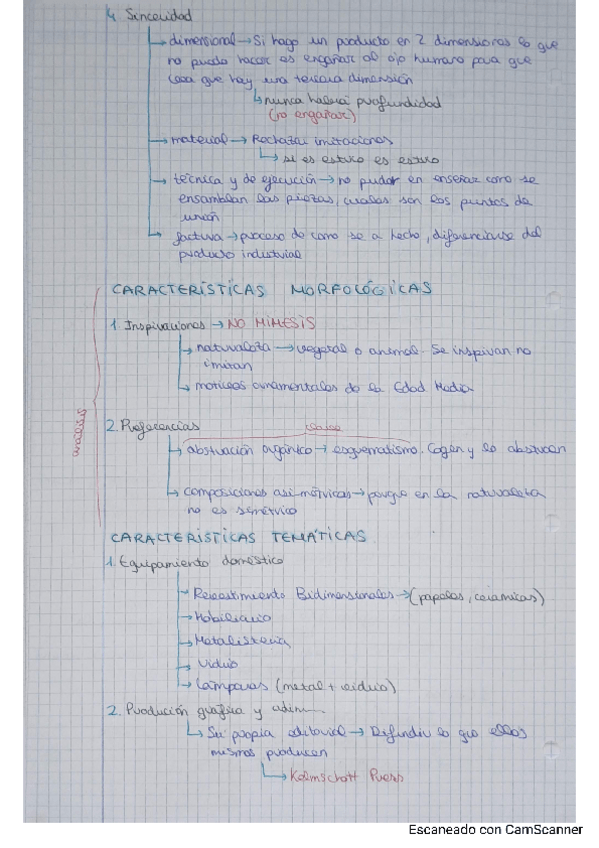 4. Sinceridad
↳ dimensional → Si hago un producto en 2 dimensiones lo que
no puedo hacer es engañar al ojo humano para que
crea que hay una tercera dimensión
↳ nunca habrá profundidad
(no engañar)
→ material → Rechazar imitaciones
↳ si es estuco es estuco
→ técnica y de ejecución → no pudor en enseñar como se
ensamblan las piezas, cuales son los puntos de
unión
↳ factura → proceso de como se a hecho, diferenciarse del
producto industrial
CARACTERÍSTICAS MORFOLÓGICAS
1. Inspiraciones → NO MÍMESIS
→ naturaleza → vegetal o animal. Se inspiran no
imitan
→ motivos ornamentales de la Edad Media
2. Preferencias
clave
→ abstracción orgánico → esquematismo. Cogen y lo abstraen
→ composiciones asimétricas → porque en la naturaleza
no es simétrico
CARACTERÍSTICAS TEMÁTICAS
1. Equipamiento doméstico
→ Revestimiento Bidimensionales → (papeles, cerámicas)
→ Mobiliario
→ Metalistería
→ Vidrio
→ Lámparas (metal + vidrio)
2. Producción gráfica y
↳ Su propia editorial → Difundir lo que ellos
mismos producen
↳ Kelmschott Press
Escaneado con CamScanner